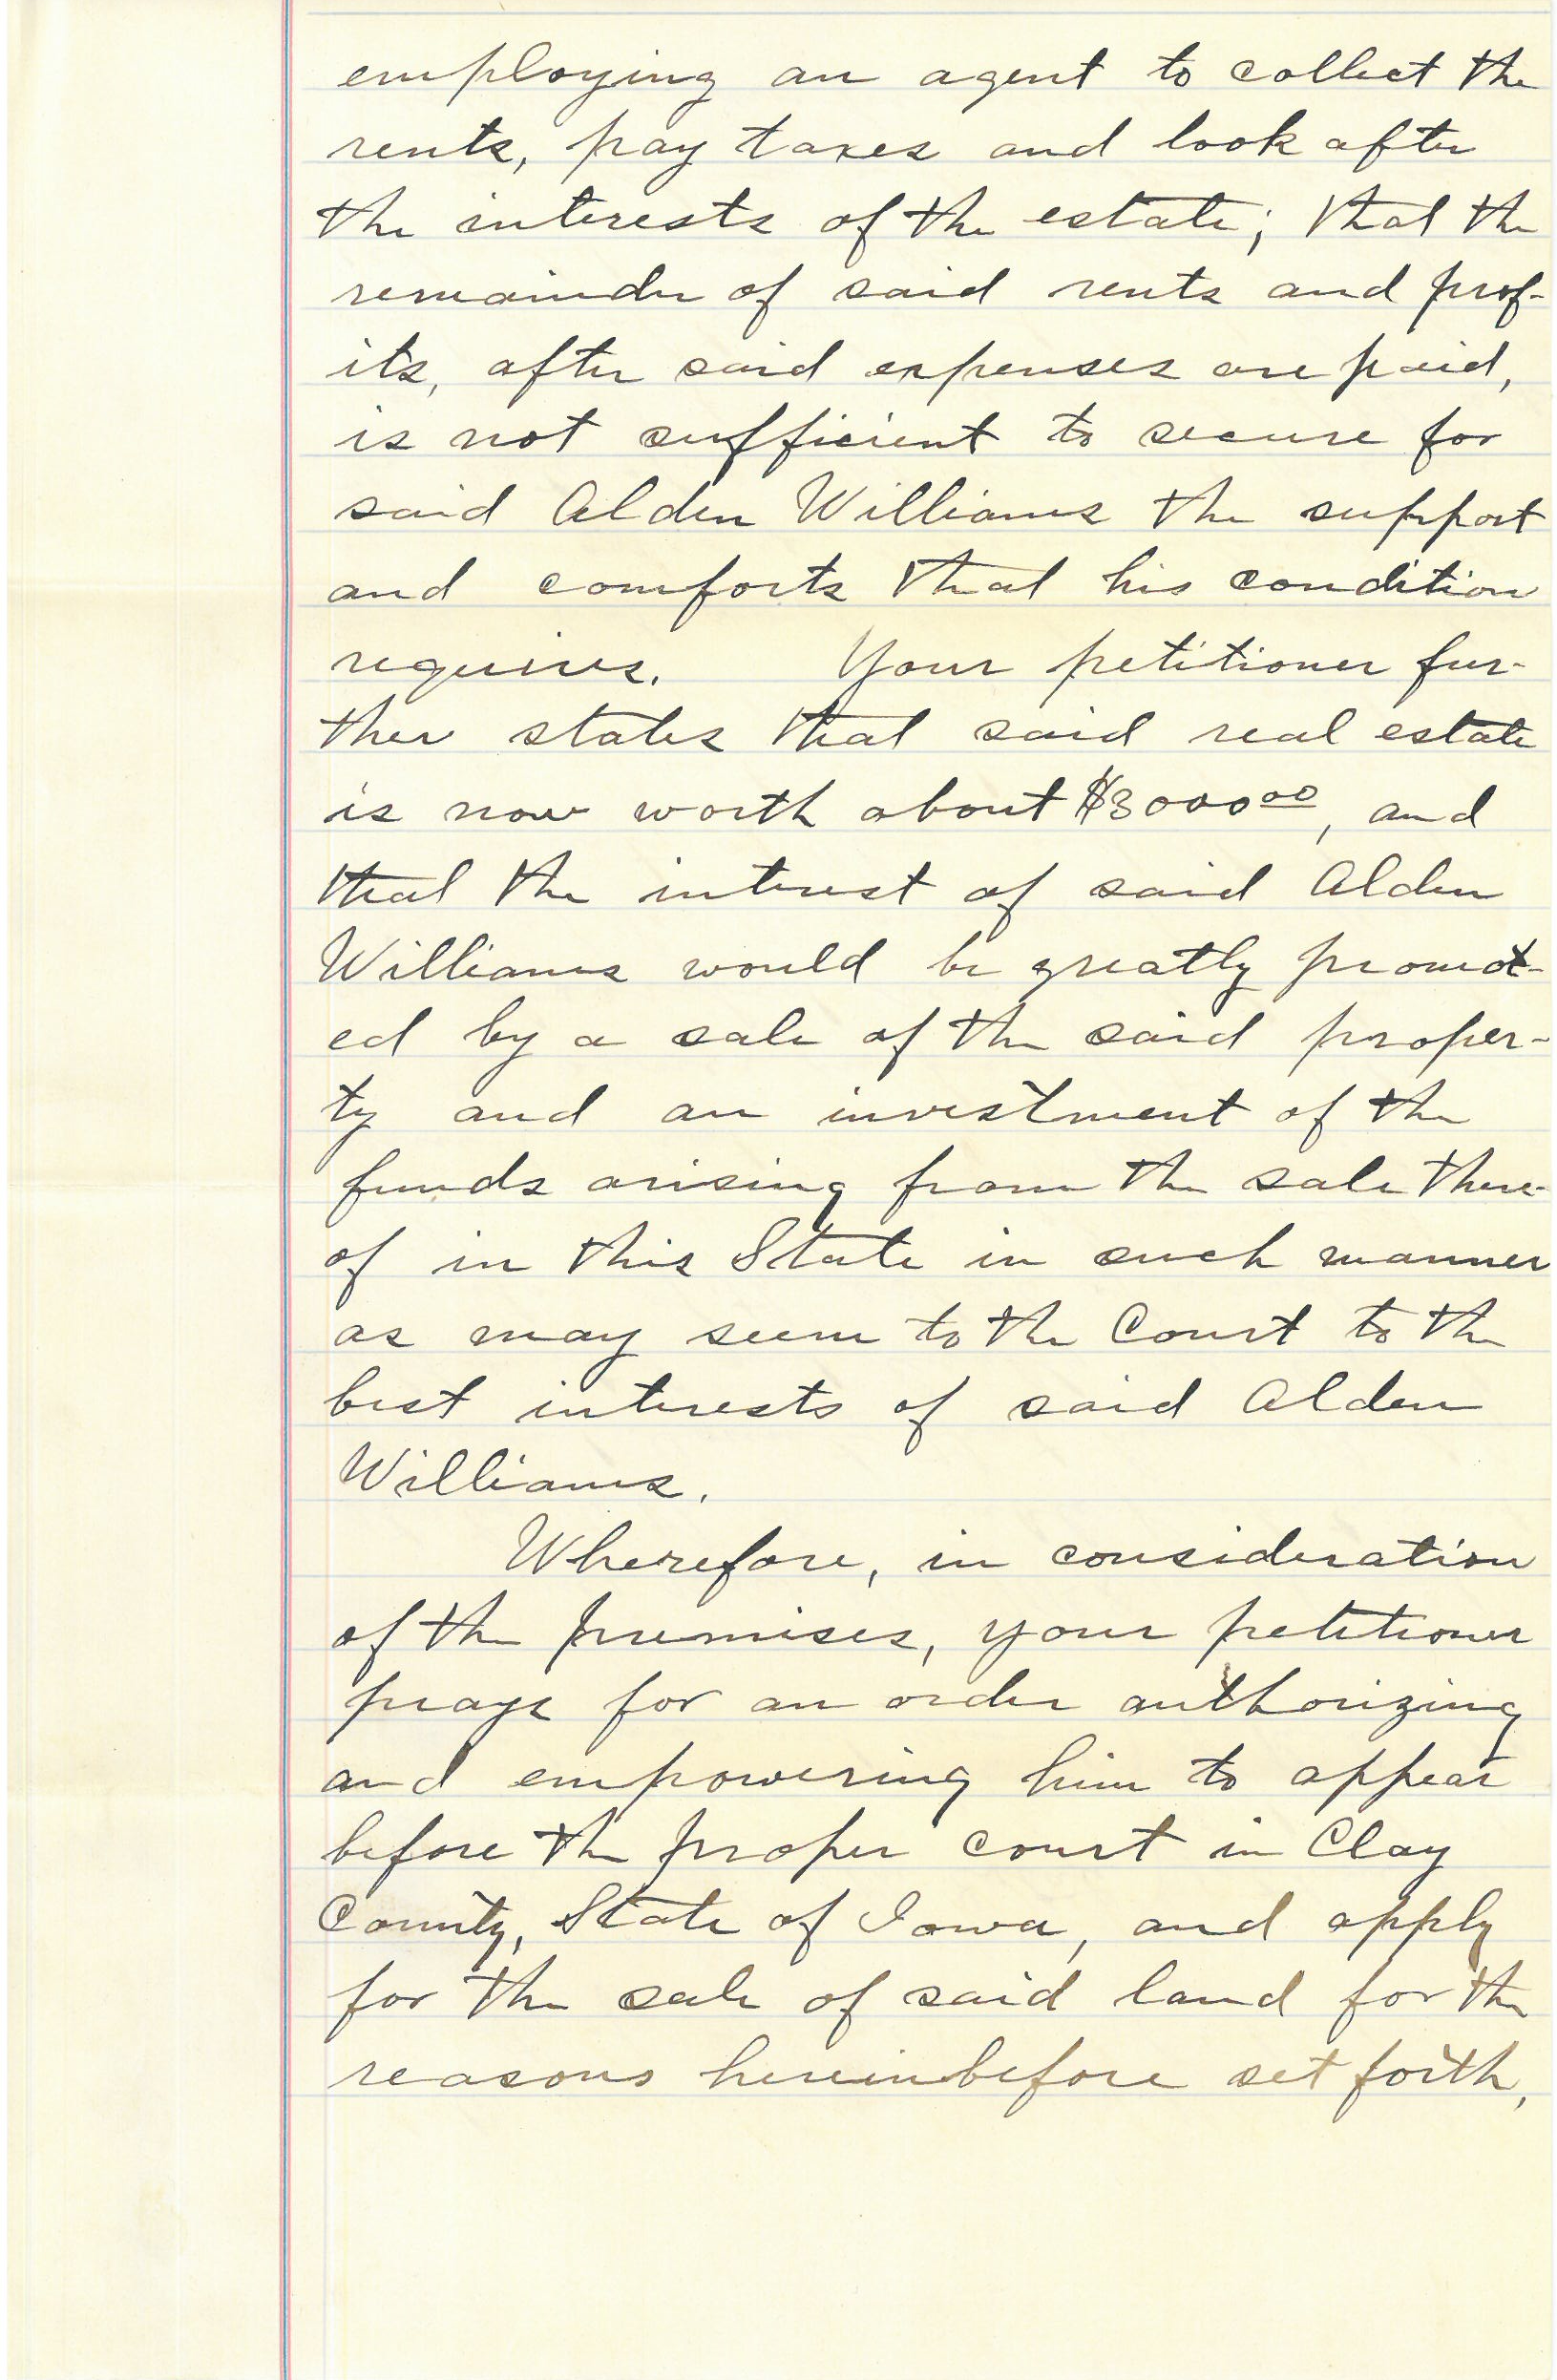 employing an agent to collect the
rents, pay taxes and look after
the interests of the estate; that the
remainder of said rents and prof-
its, after said expenses are paid,
is not sufficient to secure for
said Alden Williams the support
and comforts that his condition
requires. Your petitioner fur-
ther states that said real estate
is now worth about $3000⁰⁰, and
that the interest of said Alden
Williams would be greatly promot-
ed by a sale of the said proper-
ty and an investment of the
funds arising from the sale there-
of in this State in such manner
as may seem to the Court to the
best interests of said Alden
Williams.
Wherefore, in consideration
of the premises, your petitioner
prays for an order authorizing
and empowering him to appear
before the proper court in Clay
County, State of Iowa, and apply
for the sale of said land for the
reasons hereinbefore set forth,